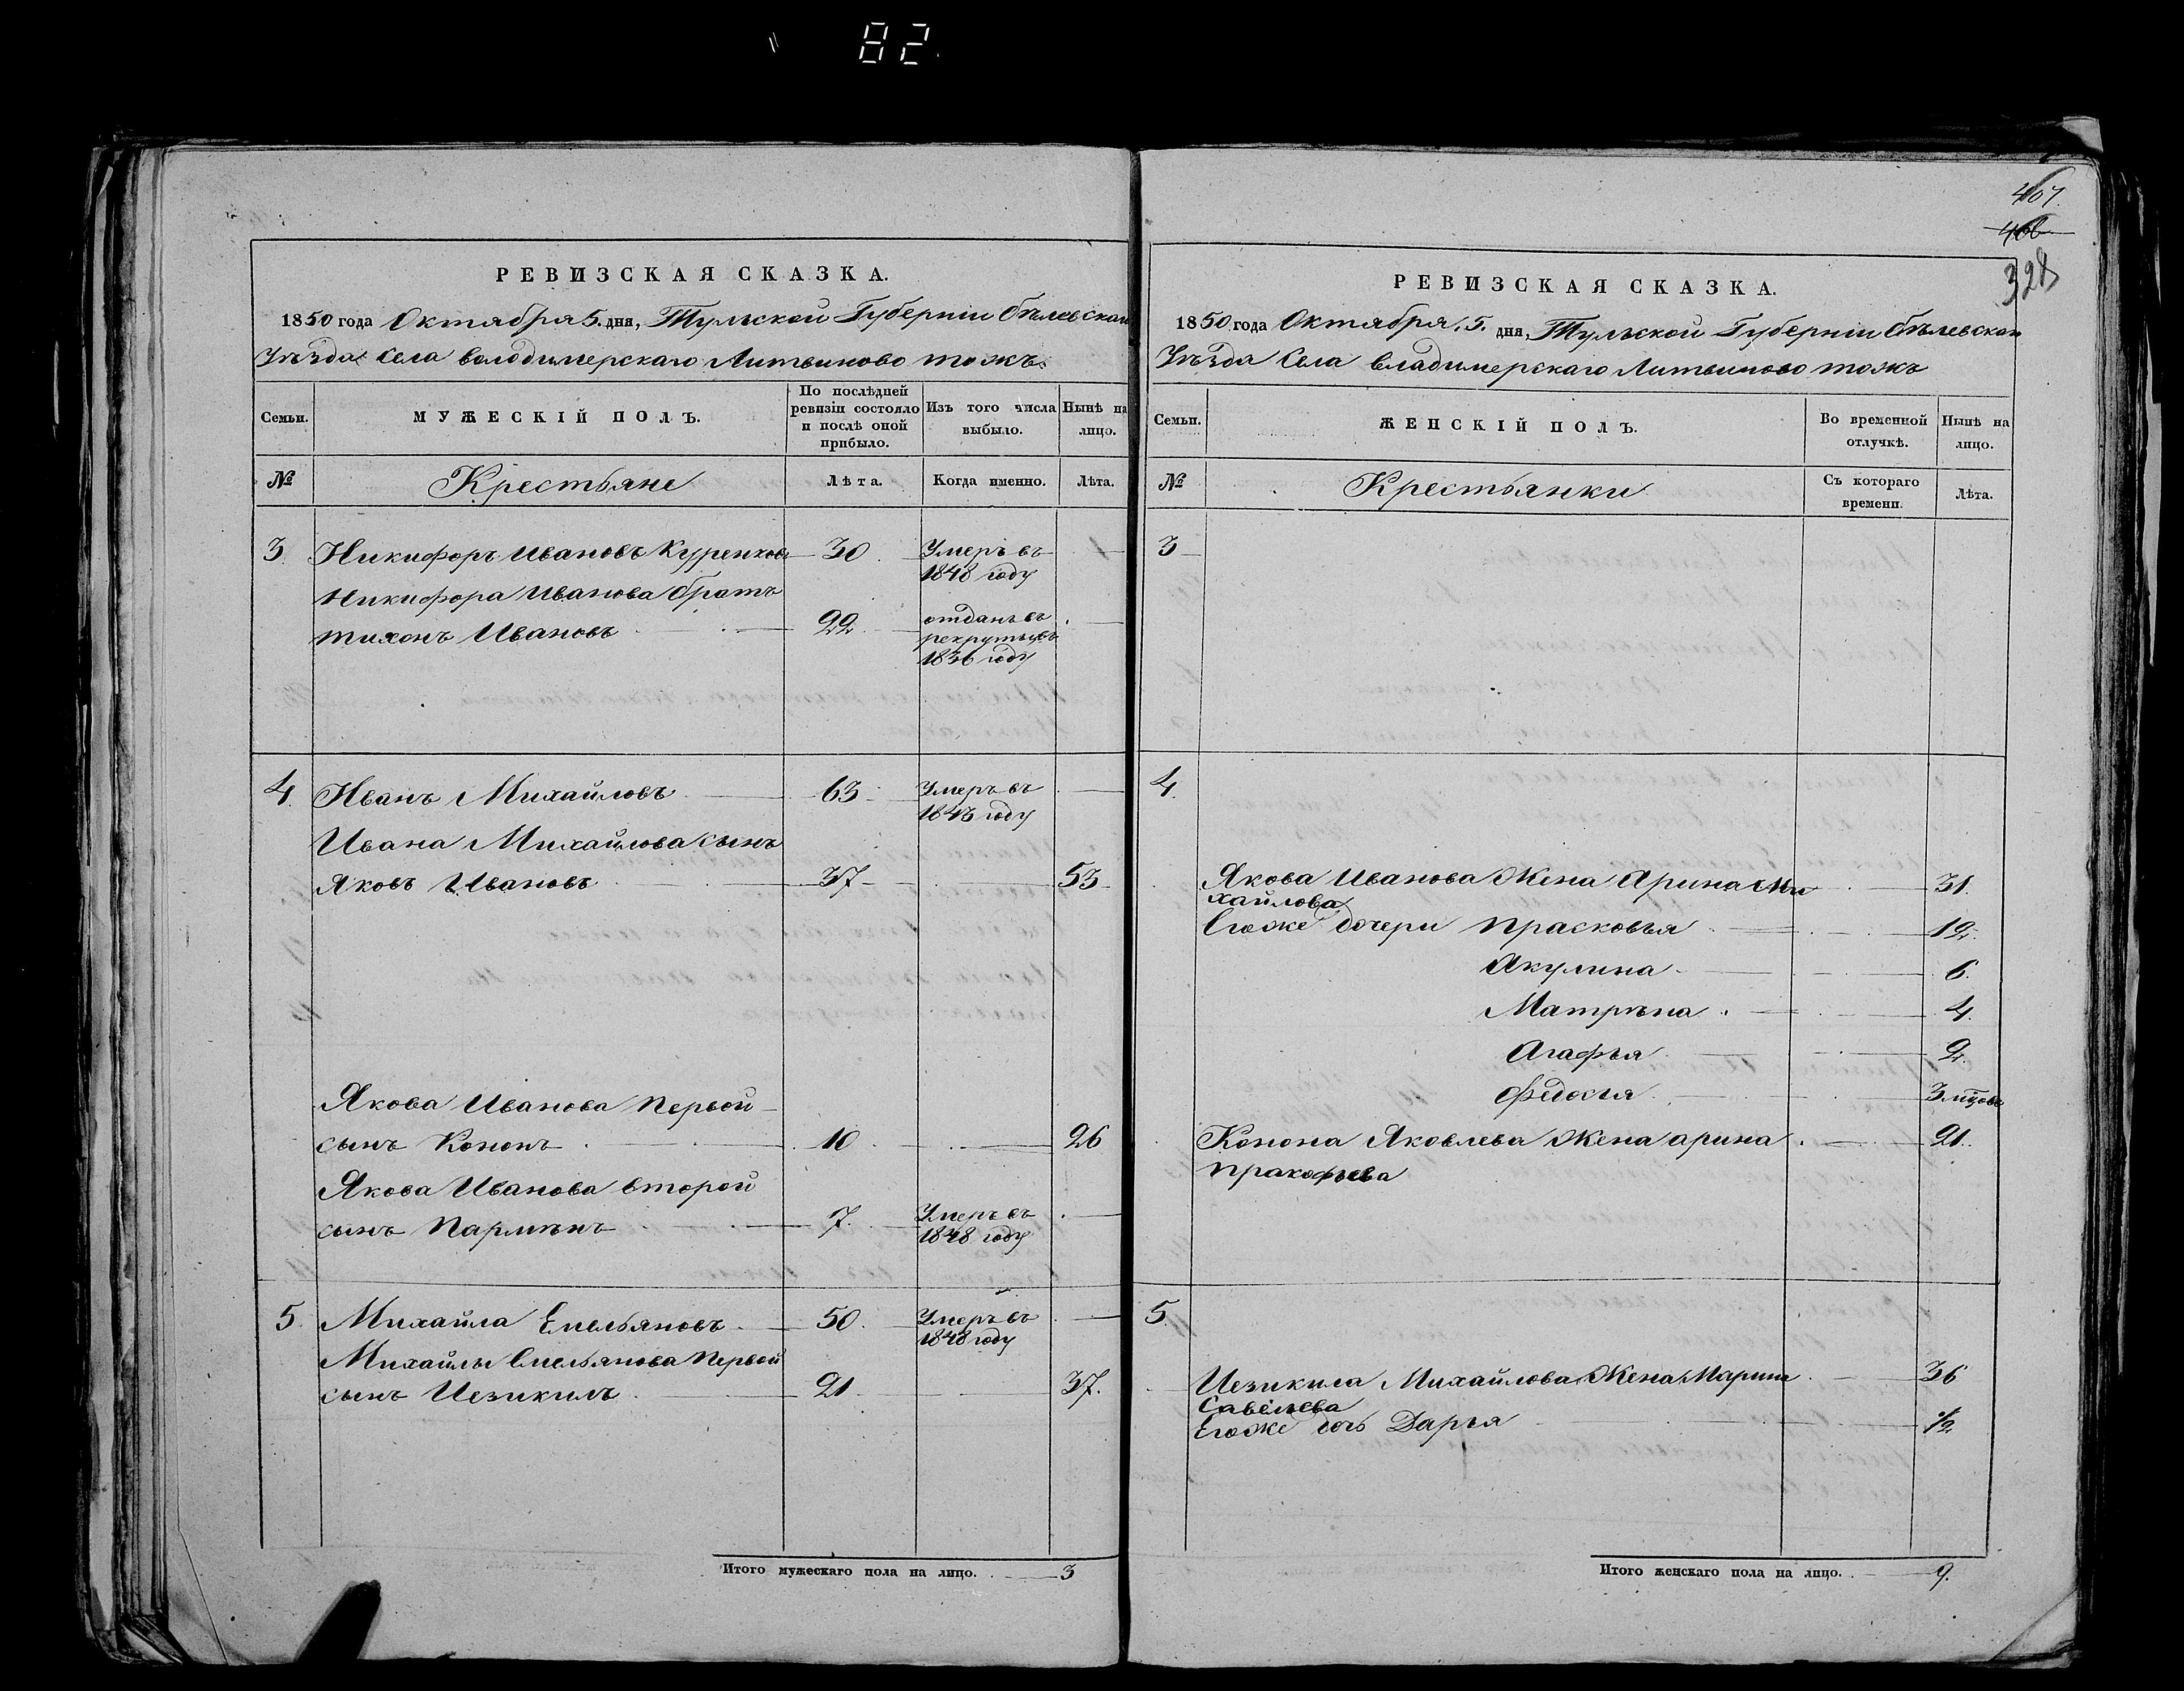 82.
РЕВИЗСКАЯ СКАЗКА.
1850 года Октября 5. дня, Тульской Губерніи Бѣлевскаго
Уѣзда Села Володимерскаго Литвиново тожъ
Семьи.
МУЖЕСКІЙ ПОЛЪ.
По послѣдней ревизіи состояло и послѣ оной прибыло.
Изъ того числа выбыло.
Нынѣ на лицо.
№
Крестьяне
Лѣта.
Когда именно.
Лѣта.
3. Никифоръ Ивановъ Куренковъ 30 Умеръ въ 1848 году
Никифора Иванова братъ
тихонъ Ивановъ 22 отданъ въ рекруты въ 1836 году
4. Иванъ Михайловъ 63 Умеръ въ 1843 году
Ивана Михайлова сынъ
Яковъ Ивановъ 37 53
Якова Иванова первой
сынъ Кононъ 10 26
Якова Иванова второй
сынъ Парменъ 7. Умеръ въ 1848 году
5. Михайла Емельяновъ 50. Умеръ въ 1848 году
Михайлы Емельянова первой
сынъ Иезикилъ 21 37.
Итого мужескаго пола на лицо. 3
407.
406
328
РЕВИЗСКАЯ СКАЗКА.
1850 года Октября, 5. дня, Тульской Губерніи Бѣлевскаго
Уѣзда Села Владимерскаго Литвиново тожъ
Семьи.
ЖЕНСКІЙ ПОЛЪ.
Во временной отлучкѣ.
Нынѣ на лицо.
№
Крестьянки
Съ котораго времени.
Лѣта.
3
4.
Якова Иванова Жена Арина Ми 31.
хайлова
Егоже дочери Прасковья 12.
Акулина 6.
Матрѣна 4.
Агафья 2.
Федосья 3 мцовъ
Конона Яковлева Жена арина 21.
Пракофьева
5.
Иезикила Михайлова Жена Марина 36
Савельева
Егоже дочь Дарья 1/2
Итого женскаго пола на лицо. 9.